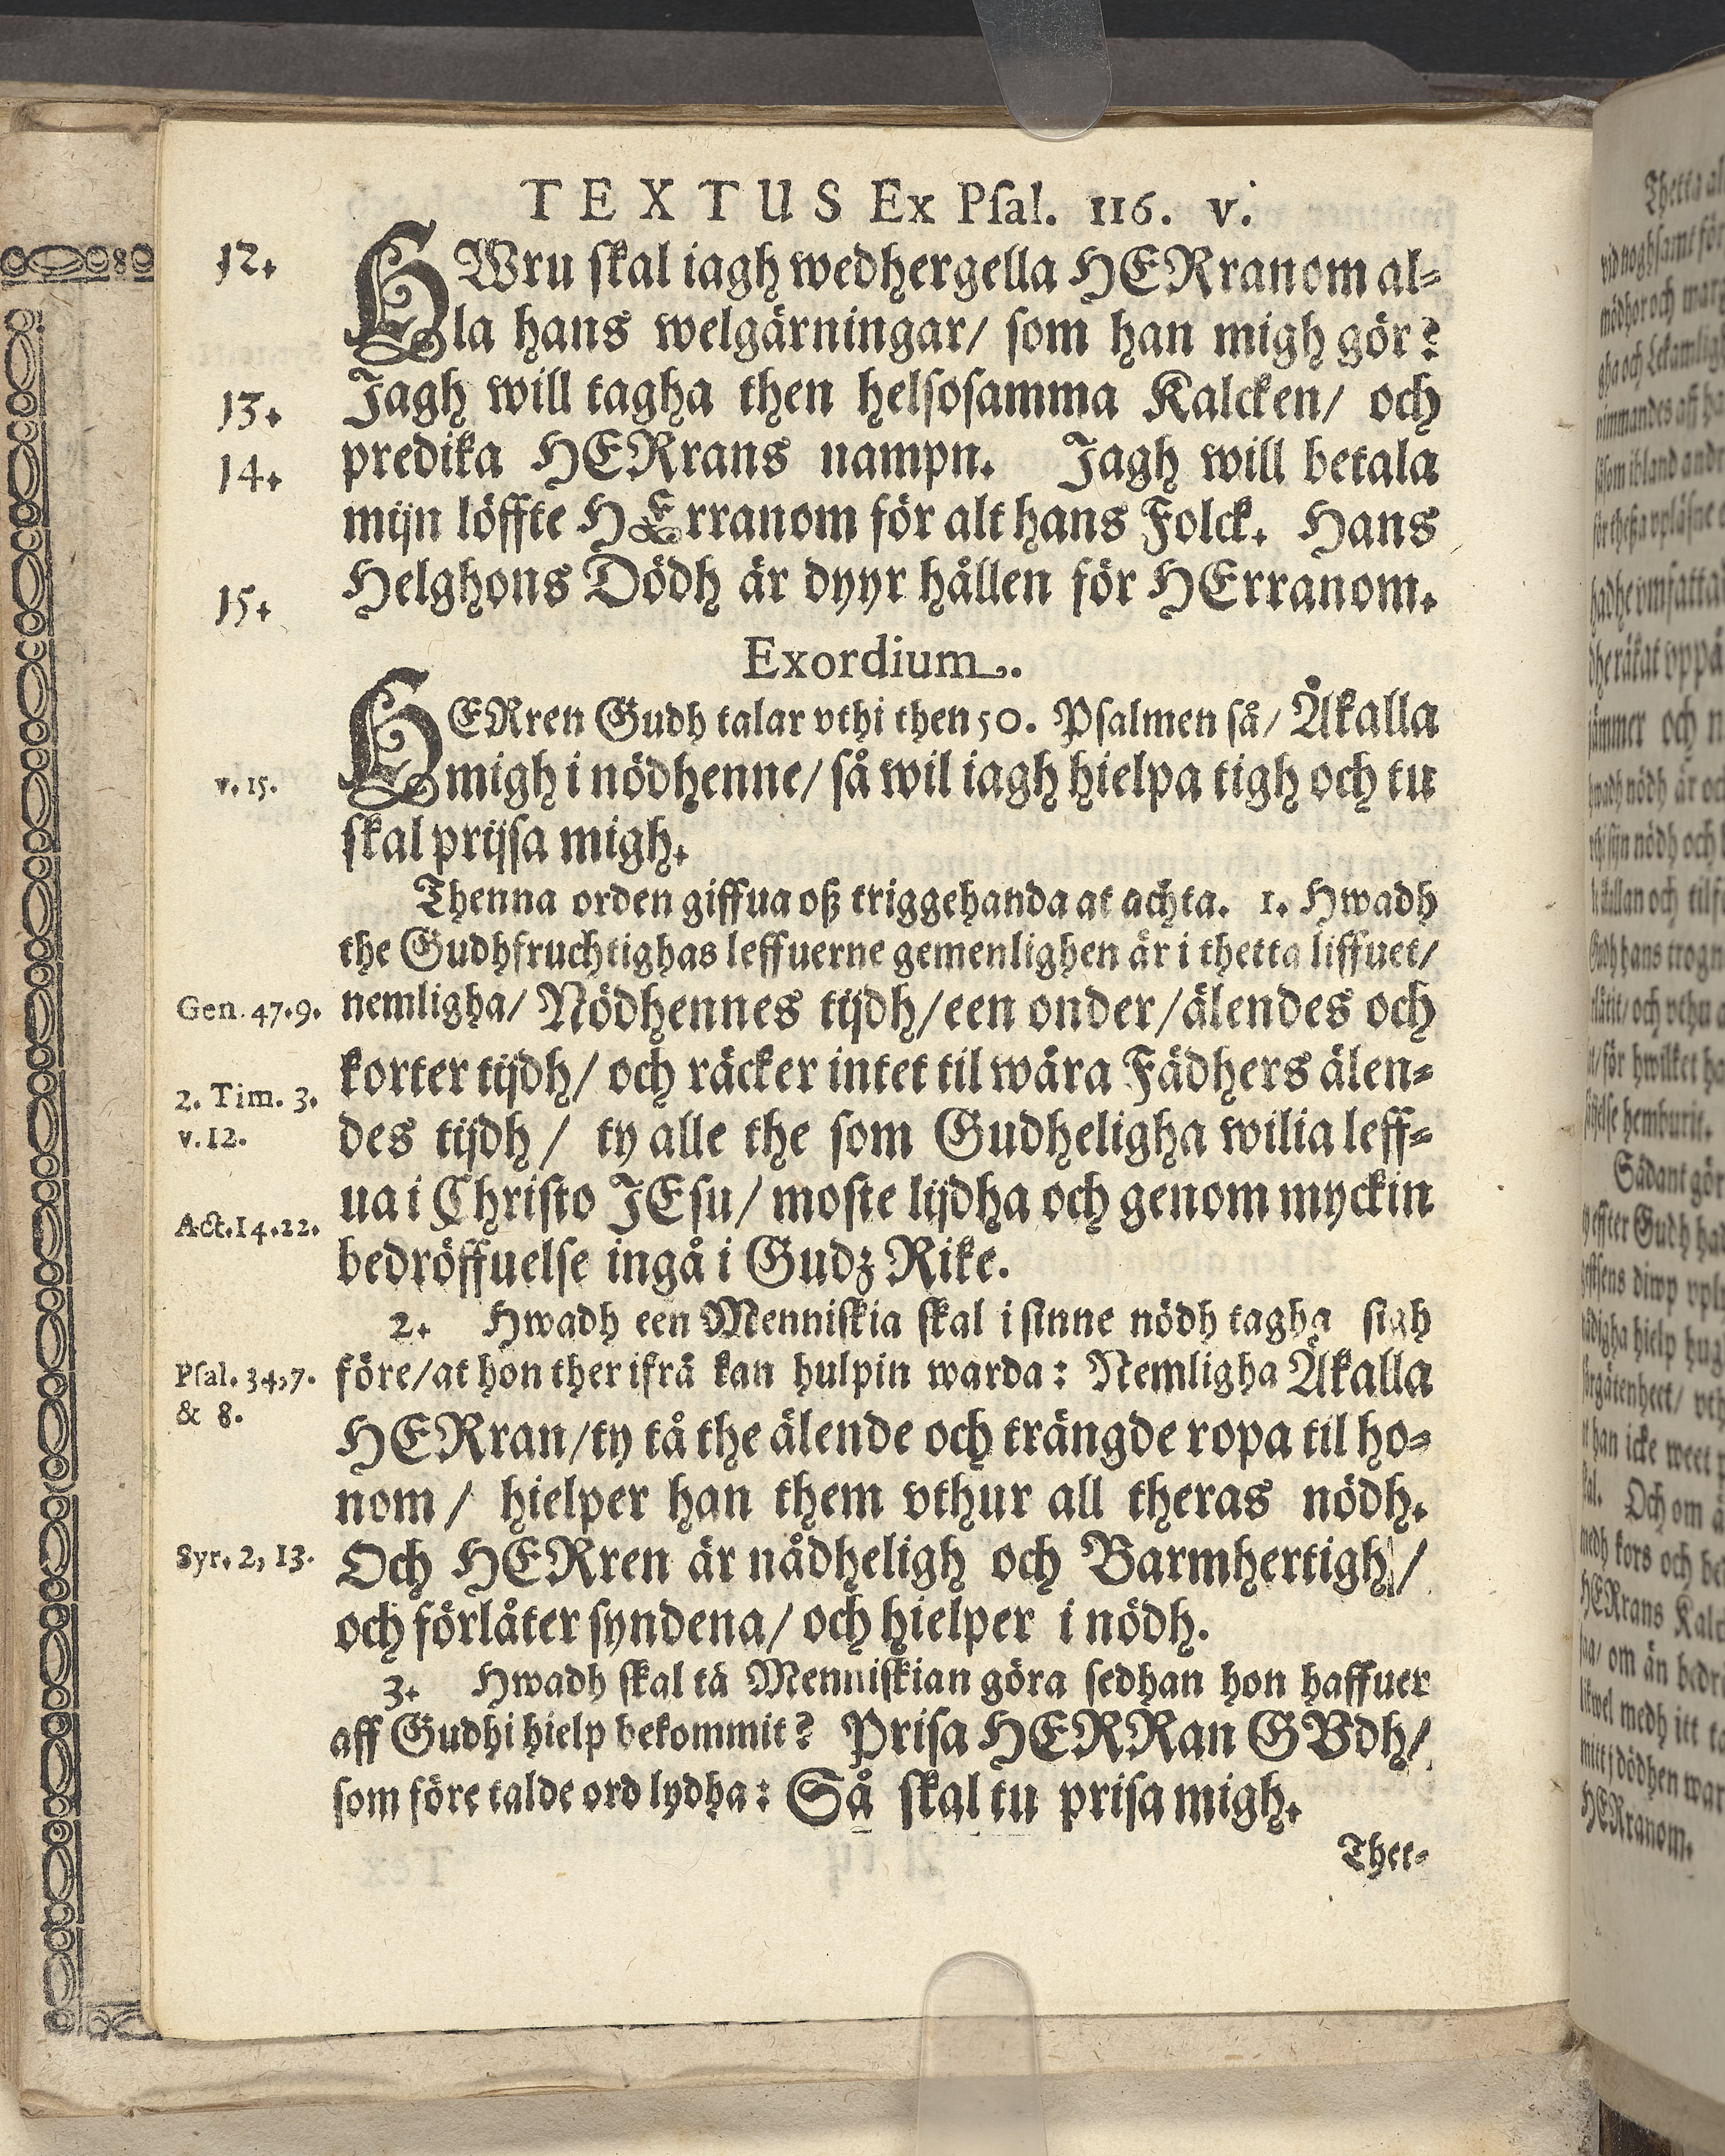 TEXTUS Ex Psal. 116. v.
12.
HWru skal iagh wedhergella HERranom al-
la hans welgärningar/ som han migh gör?
13.
Jagh will tagha then helsosamma Kalcken/ och
14.
predika HERrans nampn. Jagh will betala
mijn löffte HErranom för alt hans Folck. Hans
15.
Helghons Dödh är dyyr hållen för HErranom.
Exordium.
HERren Gudh talar vthi then 50. Psalmen så/ Åkalla
v. 15.
migh i nödhenne/ så wil iagh hielpa tigh och tu
skal prijsa migh.
Thenna orden giffua oß triggehanda at achta. 1. Hwadh
the Gudhfruchtighas leffuerne gemenlighen är i thetta liffuet/
Gen. 47.9.
nemligha/ Nödhennes tijdh/ een onder/ älendes och
korter tijdh/ och räcker intet til wåra Fädhers älen-
2. Tim. 3.
v. 12.
des tijdh/ ty alle the som Gudheligha wilia leff-
ua i Christo JEsu/ moste lijdha och genom myckin
Act. 14. 22.
bedröffuelse ingå i Gudz Rike.
2. Hwadh een Menniskia skal i sinne nödh tagha sigh
Psal. 34,7.
& 8.
före/ at hon ther ifrå kan hulpin warda: Nemligha Åkalla
HERran/ ty tå the älende och trängde ropa til ho-
nom/ hielper han them vthur all theras nödh.
Syr. 2, 13.
Och HERren är nådheligh och Barmhertigh/
och förlåter syndena/ och hielper i nödh.
3. Hwadh skal tå Menniskian göra sedhan hon haffuer
aff Gudhi hielp bekommit? Prisa HERRan GVdh/
som före talde ord lydha: Så skal tu prisa migh.
Thet-